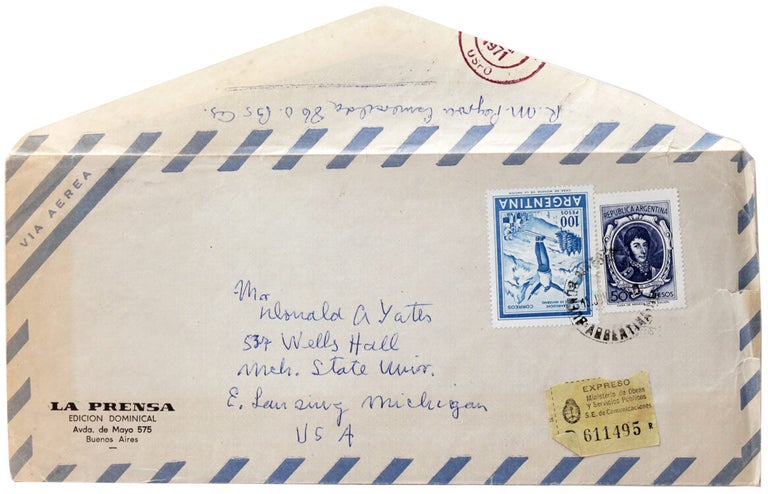 1971
USPO
R. M. Peyrou Esmeralda 860. Bs As.
VIA AEREA
CASA DE MONEDA DE LA NACION
ARGENTINA
100
PESOS
CORREOS
REPUBLICA ARGENTINA
50
PESOS
BUENOS
ARGENTINA
Mr
Donald A Yates
537 Wells Hall
Mch. State Univ.
E. Lansing Michigan
USA
LA PRENSA
EDICION DOMINICAL
Avda. de Mayo 575
Buenos Aires
EXPRESO
Ministerio de Obras
y Servicios Públicos
S.E. de Comunicaciones
611495 R